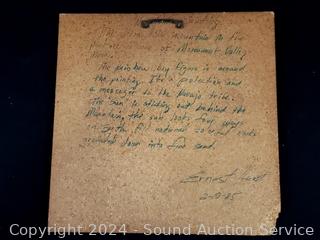 The
mountain in the
of Monument Valley
The rainbow yei figure is around
the painting. Its a protection and
a messenger to the Navajo tribe.
The Sun is sliding out behind the
Mountains, the sun looks four ways
on Earth. All natural colored rocks
grounded down into fine sand.
Ernest
2-5-85
Copyright 2024 - Sound Auction Service